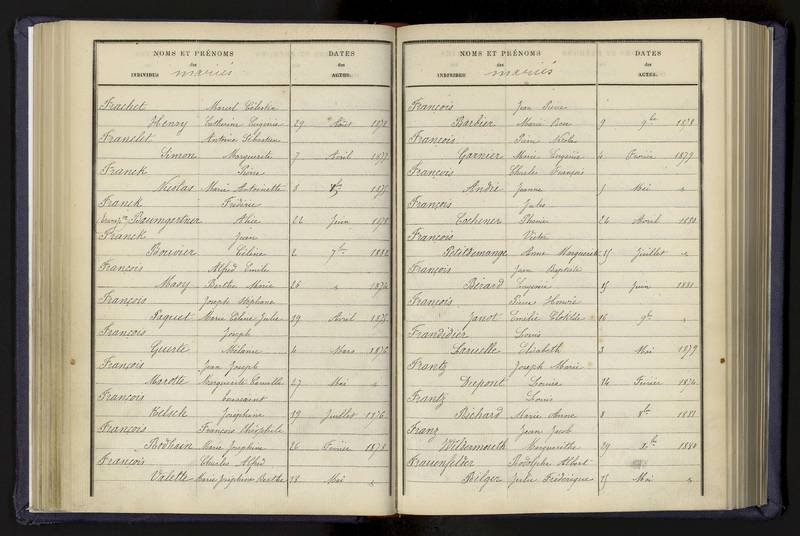 NOMS ET PRÉNOMS DATES
des des
INDIVIDUS mariés ACTES.
Frachet Marcel Célestin
Henry Catherine Eugénie 29 Août 187
Franclet Antoine Sébastien
Simon Marguerite 7 Avril 1877
Franck Pierre
Nicolas Marie Antoinette 8 187
Franck Frédéric
Baumgertner Alice 22 Juin 1878
Franck Jean
Bouvier Céline 2 7bre 1882
François Alfred Emile
Masy Berthe Marie 26 " 1874
François Joseph Stéphane
Paquet Marie Céline Julie 29 Avril 1875
François Joseph
Guerte Mélanie 4 Mars 1876
François Jean Joseph
Marotte Marguerite Camille 27 Mai "
François Toussaint
Kelsch Joséphine 19 Juillet 1876
François François Théophile
Marie Joséphine 26 Février 1878
François Charles Alfred
Valette Marie Joséphine Marthe 18 Mai "
NOMS ET PRÉNOMS DATES
des des
INDIVIDUS mariés ACTES.
François Jean Pierre
Barbier Marie Rose 9 9bre 1878
François Pierre Nicolas
Garnier Marie Eugénie 4 Février 1879
François Charles François
André Jeanne 5 Mai "
François Jules
Lochener 24 Avril 1880
François Victor
Petitdemange Anne Marguerite 15 Juillet "
François Jean Baptiste
Bérard Eugénie 15 Juin 1881
François Pierre Honoré
Janot Emélie Clotilde 16 9bre
Frandidier Louis
Laruelle Elisabeth 3 Mai 1879
Frantz Joseph Marie
Dupont Louise 14 Février 1874
Frantz Louis
Richard Marie Anne 8 8bre 1881
Franz Jean Jacob
Wildermouth Marguerithe 29 1880
Frauenfelder Rodolphe Albert
Bilger Julie Frédérique 15 Mai "